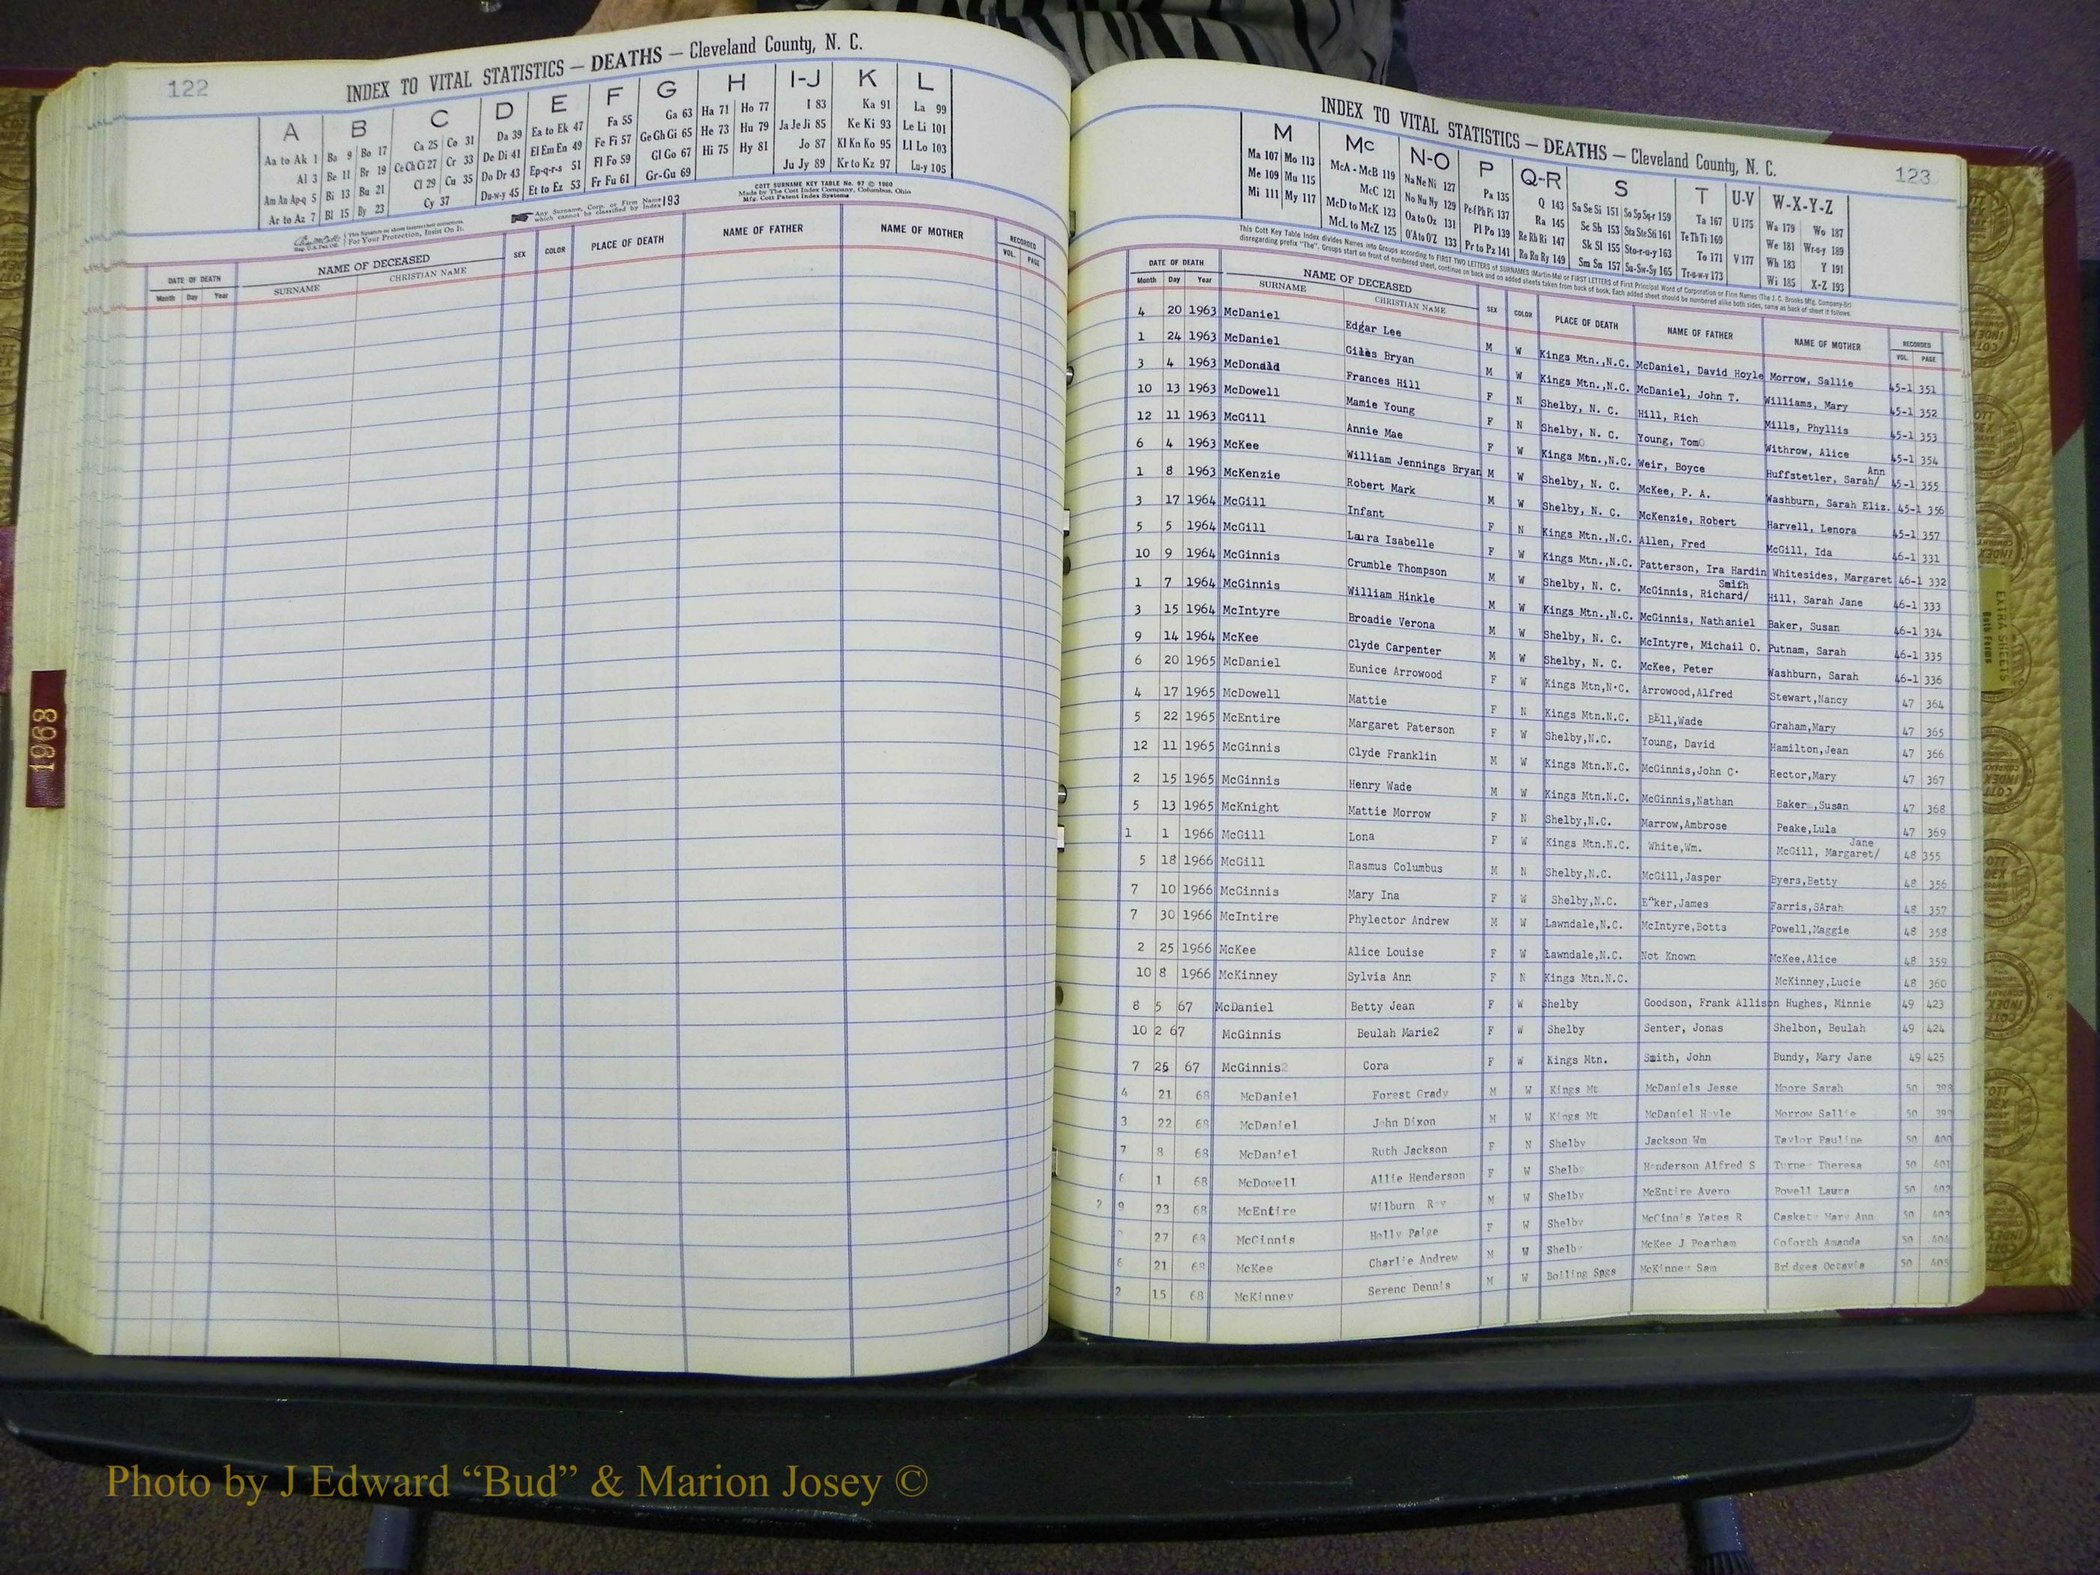 122
INDEX TO VITAL STATISTICS — DEATHS — Cleveland County, N. C.
A B C D E F G H I-J K L
Aa to Ak 1 Ba 9 Bo 17 Ca 25 Co 31 Da 39 Ea to Ek 47 Fa 55 Ga 63 Ha 71 Ho 77 I 83 Ka 91 La 99
Al 3 Be 11 Br 19 Ce Ch Ci 27 Cr 33 De Di 41 El Em En 49 Fe Fi 57 Ge Gh Gi 65 He 73 Hu 79 Ja Je Ji 85 Ke Ki 93 Le Li 101
Am An Ap-q 5 Bi 13 Bu 21 Cl 29 Cu 35 Do Dr 43 Ep-q-r-s 51 Fl Fo 59 Gl Go 67 Hi 75 Hy 81 Jo 87 Kl Kn Ko 95 Ll Lo 103
Ar to Az 7 Bl 15 By 23 Cy 37 Du-w-y 45 Et to Ez 53 Fr Fu 61 Gr-Gu 69 Ju Jy 89 Kr to Kz 97 Lu-y 105
COTT SURNAME KEY TABLE No. 97 © 1960
Made by The Cott Index Company, Columbus, Ohio
Mfg. Cott Patent Index Systems
Any Surname, Corp. or Firm Name which cannot be classified by Index 193
For Your Protection, Insist On It.
DATE OF DEATH NAME OF DECEASED SEX COLOR PLACE OF DEATH NAME OF FATHER NAME OF MOTHER RECORDED
Month Day Year SURNAME CHRISTIAN NAME VOL. PAGE
1968
INDEX TO VITAL STATISTICS — DEATHS — Cleveland County, N. C.
123
M Mc N-O P Q-R S T U-V W-X-Y-Z
Ma 107 Mo 113 McA - McB 119 Na Ne Ni 127 Pa 135 Q 143 Sa Se Si 151 So Sp Sq-r 159 Ta 167 U 175 Wa 179 Wo 187
Me 109 Mu 115 McC 121 No Nu Ny 129 Pe-f Ph Pi 137 Ra 145 Sc Sh 153 Sta Ste Sti 161 Te Th Ti 169 We 181 Wr-s-y 189
Mi 111 My 117 McD to McK 123 Oa to Oz 131 Pl Po 139 Re Rh Ri 147 Sk Sl 155 Sto-r-u-y 163 To 171 V 177 Wh 183 Y 191
McL to McZ 125 O'A to O'Z 133 Pr to Pz 141 Ro Ru Ry 149 Sm Sn 157 Su-Sw-Sy 165 Tr-u-w-y 173 Wi 185 X-Z 193
This Cott Key Table Index divides Names into Groups according to FIRST TWO LETTERS of SURNAMES (Martin-Ma) or FIRST LETTERS of First Principal Word of Corporation or Firm Names (The J. C. Brooks Mfg. Company-Br)
disregarding prefix "The". Groups start on front of numbered sheet, continue on back and on added sheets taken from back of book. Each added sheet should be numbered alike both sides, same as back of sheet it follows.
DATE OF DEATH NAME OF DECEASED SEX COLOR PLACE OF DEATH NAME OF FATHER NAME OF MOTHER RECORDED
Month Day Year SURNAME CHRISTIAN NAME VOL. PAGE
4 20 1963 McDaniel Edgar Lee M W Kings Mtn.,N.C. McDaniel, David Hoyle Morrow, Sallie 45-1 351
1 24 1963 McDaniel Giles Bryan M W Kings Mtn.,N.C. McDaniel, John T. Williams, Mary 45-1 352
3 4 1963 McDonald Frances Hill F N Shelby, N. C. Hill, Rich Mills, Phyllis 45-1 353
10 13 1963 McDowell Mamie Young F N Shelby, N. C. Young, Tom Withrow, Alice 45-1 354
12 11 1963 McGill Annie Mae F W Kings Mtn.,N.C. Weir, Boyce Huffstetler, Sarah/ Ann 45-1 355
6 4 1963 McKee William Jennings Bryan M W Shelby, N. C. McKee, P. A. Washburn, Sarah Eliz. 45-1 356
1 8 1963 McKenzie Robert Mark M W Shelby, N. C. McKenzie, Robert Harvell, Lenora 45-1 357
3 17 1964 McGill Infant F N Kings Mtn.,N.C. Allen, Fred McGill, Ida 46-1 331
5 5 1964 McGill Laura Isabelle F W Kings Mtn.,N.C. Patterson, Ira Hardin Whitesides, Margaret 46-1 332
10 9 1964 McGinnis Crumble Thompson M W Shelby, N. C. McGinnis, Richard/ Smith Hill, Sarah Jane 46-1 333
1 7 1964 McGinnis William Hinkle M W Kings Mtn.,N.C. McGinnis, Nathaniel Baker, Susan 46-1 334
3 15 1964 McIntyre Broadie Verona M W Shelby, N. C. McIntyre, Michail O. Putnam, Sarah 46-1 335
9 14 1964 McKee Clyde Carpenter M W Shelby, N. C. McKee, Peter Washburn, Sarah 46-1 336
6 20 1965 McDaniel Eunice Arrowood F W Kings Mtn,N.C. Arrowood,Alfred Stewart,Nancy 47 364
4 17 1965 McDowell Mattie F N Kings Mtn.N.C. Bell,Wade Graham,Mary 47 365
5 22 1965 McEntire Margaret Paterson F W Shelby,N.C. Young, David Hamilton,Jean 47 366
12 11 1965 McGinnis Clyde Franklin M W Kings Mtn.N.C. McGinnis,John C. Rector,Mary 47 367
2 15 1965 McGinnis Henry Wade M W Kings Mtn.N.C. McGinnis,Nathan Baker ,Susan 47 368
5 13 1965 McKnight Mattie Morrow F N Shelby,N.C. Marrow,Ambrose Peake,Lula 47 369
1 1 1966 McGill Lona F W Kings Mtn.N.C. White,Wm. McGill, Margaret/ Jane 48 355
5 18 1966 McGill Rasmus Columbus M N Shelby,N.C. McGill,Jasper Byers,Betty 48 356
7 10 1966 McGinnis Mary Ina F W Shelby,N.C. Eaker,James Farris,SArah 48 357
7 30 1966 McIntire Phylector Andrew M W Lawndale,N.C. McIntyre,Botts Powell,Maggie 48 358
2 25 1966 McKee Alice Louise F W Lawndale,N.C. Not Known McKee,Alice 48 359
10 8 1966 McKinney Sylvia Ann F N Kings Mtn.N.C. McKinney,Lucie 48 360
8 5 67 McDaniel Betty Jean F W Shelby Goodson, Frank Allison Hughes, Minnie 49 423
10 2 67 McGinnis Beulah Marie2 F W Shelby Senter, Jonas Shelbon, Beulah 49 424
7 25 67 McGinnis Cora F W Kings Mtn. Smith, John Bundy, Mary Jane 49 425
4 21 68 McDaniel Forest Grady M W Kings Mt McDaniels Jesse Moore Sarah 50 398
3 22 68 McDaniel John Dixon M W Kings Mt McDaniel Hoyle Morrow Sallie 50 399
7 8 68 McDaniel Ruth Jackson F N Shelby Jackson Wm Taylor Pauline 50 400
6 1 68 McDowell Allie Henderson F W Shelby Henderson Alfred S Turner Theresa 50 401
9 23 68 McEntire Wilburn Roy M W Shelby McEntire Avero Powell Laura 50 402
27 68 McGinnis Holly Paige F W Shelby McGinnis Yates R Caskety Mary Ann 50 403
6 21 68 McKee Charlie Andrew M W Shelby McKee J Pearham Goforth Amanda 50 404
2 15 68 McKinney Sereno Dennis M W Boiling Spgs McKinney Sam Bridges Octavia 50 405
EXTRA SHEETS
Photo by J Edward “Bud” & Marion Josey ©